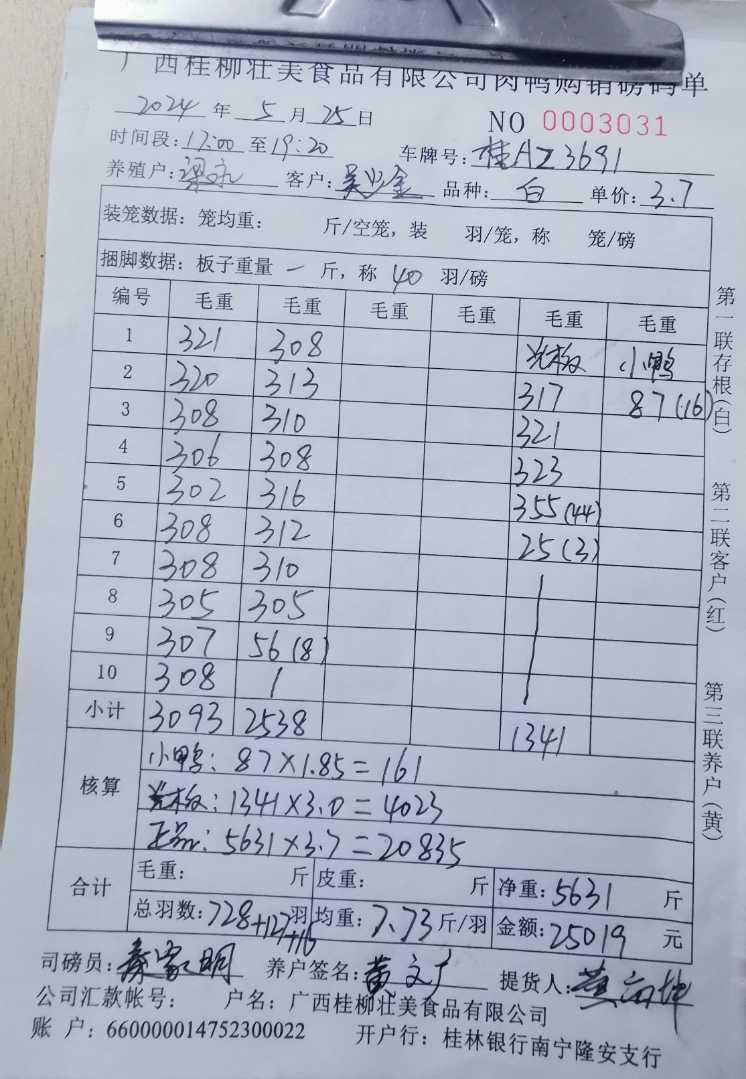 广西桂柳壮美食品有限公司肉鸭购销磅码单
2024年5月25日 NO 0003031
时间段:17:00至19:20 车牌号:桂AZ3691
养殖户: 客户:吴少金 品种:白 单价:3.7
装笼数据:笼均重: 斤/空笼,装 羽/笼,称 笼/磅
捆脚数据:板子重量 一 斤,称 40 羽/磅
编号 毛重 毛重 毛重 毛重 毛重 毛重
1 321 308 光板 小鸭
2 320 313 317 87(16)
3 308 310 321
4 306 308 323
5 302 316 355(44)
6 308 312 25(3)
7 308 310
8 305 305
9 307 56(8)
10 308 /
小计 3093 2538 1341
核算
小鸭:87×1.85=161
光板:1341×3.0=4023
正品:5631×3.7=20835
合计
毛重: 斤 皮重: 斤 净重:5631 斤
总羽数:728+127+16羽 均重:7.73斤/羽 金额:25019 元
司磅员:秦家明 养户签名:黄文广 提货人:
公司汇款帐号: 户名:广西桂柳壮美食品有限公司
账 户:660000014752300022 开户行:桂林银行南宁隆安支行
第一联存根(白)
第二联客户(红)
第三联养户(黄)